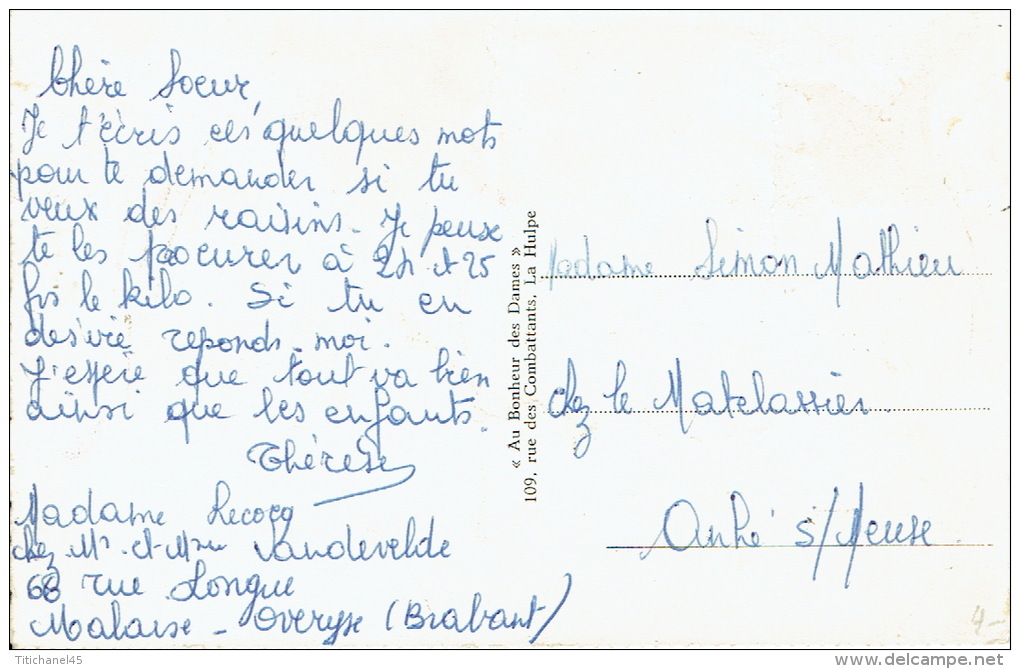 Chère Soeur,
Je t'écris ces quelques mots
pour te demander si tu
veux des raisins. Je peux
te les procurer à 24 et 25
frs le kilo. Si tu en
désire reponds-moi.
J'espère que tout va bien
ainsi que les enfants.
Thérèse
Madame Lecocq
chez Mr et Mme Vandevelde
68 rue Longue
Malaise - Overyse (Brabant)
« Au Bonheur des Dames »
109, rue des Combattants, La Hulpe
Madame Simon Mathieu
chez le Matelassier
Anhé s/Meuse.
4-
Titichanel45
delcampe.net